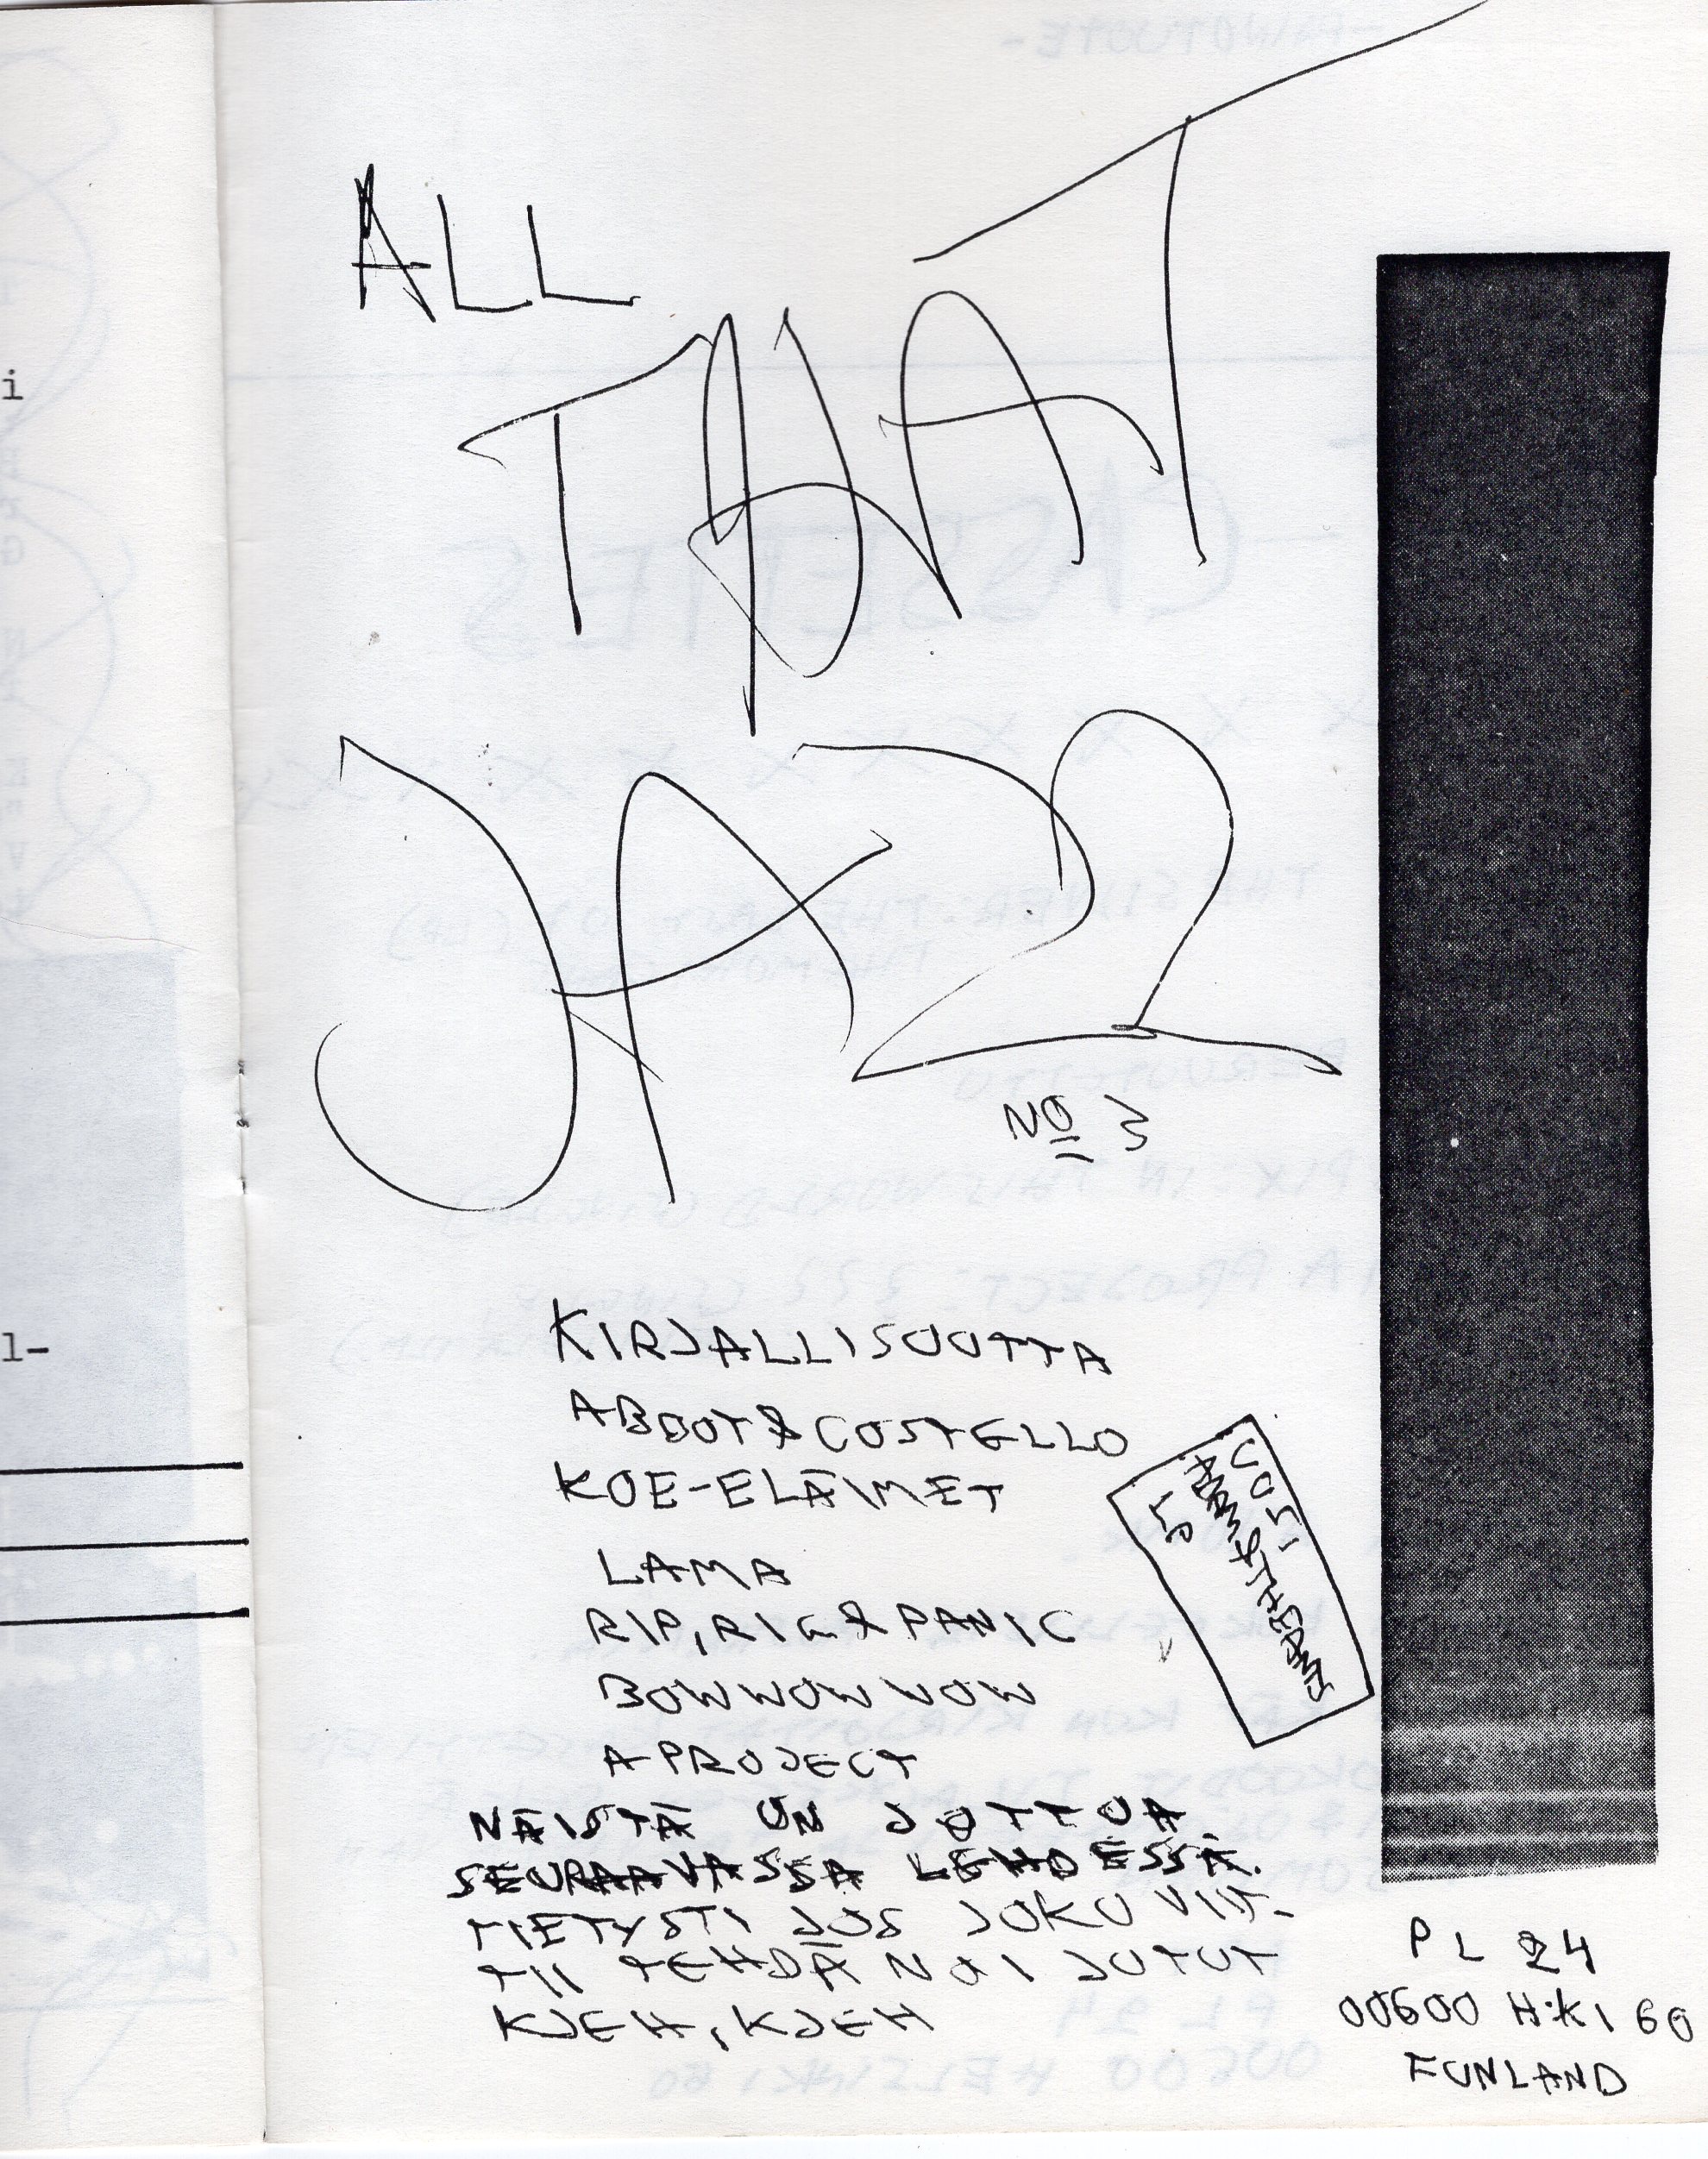 ALL
THAT
JAZZ
Nº 3
KIRJALLISUUTTA
ABBOT & COSTELLO
KOE-ELÄIMET
LAMA
RIP, RIG & PANIC
BOWWOWWOW
A PROJECT
NÄISTÄ ON JUTTUA
SEURAAVASSA LEHDESSÄ.
TIETYSTI JOS JOKU VIIT-
TII TEHDÄ NOI JUTUT
KJEH, KJEH
UUSI
PL 24
00600 H:KI 60
FUNLAND
i
l-